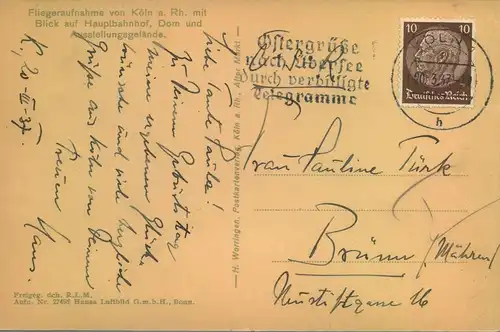 Fliegeraufnahme von Köln a. Rh. mit
Blick auf Hauptbahnhof, Dom und
Ausstellungsgelände.
K, 20-III-37.
Liebe Tante Paula!
Zu Deinem Geburtstag
meinen ergebenen Glück-
wünsche und viele herzliche
Grüsse aus Köln von Deinem
treuen Hans.
Freigeg. dch. R.L.M.
Aufn. Nr. 27695 Hansa Luftbild G.m.b.H., Bonn.
H. Worringen, Postkartenverlag, Köln a. Rh., Alter Markt
Ostergrüße
nach Übersee
Durch verbilligte
Telegramme
KÖLN
h
10 10
Deutsches Reich
Frau Pauline Türk
Brünn (Mähren)
Neustiftgasse 16